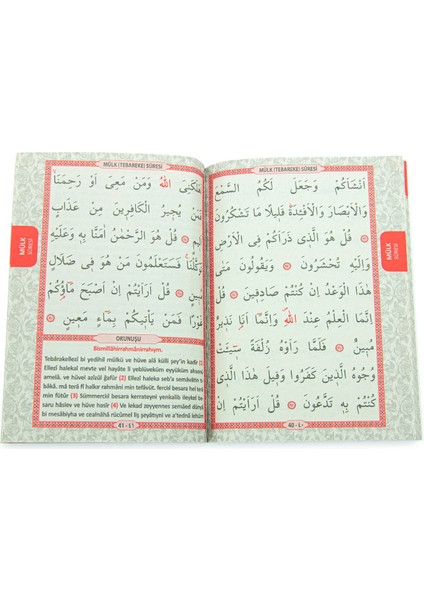 MÜLK (TEBAREKE) SÛRESİ
اَنْشَاَكُمْ وَجَعَلَ لَكُمُ السَّمْعَ
وَالْاَبْصَارَ وَالْاَفْـِٔدَةَ قَلٖيلًا مَا تَشْكُرُونَ
قُلْ هُوَ الَّذٖى ذَرَاَكُمْ فِى الْاَرْضِ
وَاِلَيْهِ تُحْشَرُونَ وَيَقُولُونَ مَتٰى
هٰذَا الْوَعْدُ اِنْ كُنْتُمْ صَادِقٖينَ قُلْ
اِنَّمَا الْعِلْمُ عِنْدَ اللّٰهِ وَاِنَّمَا اَنَا نَذٖيرٌ
مُبٖينٌ فَلَمَّا رَاَوْهُ زُلْفَةً سٖٓيـَٔتْ
وُجُوهُ الَّذٖينَ كَفَرُوا وَقٖيلَ هٰذَا الَّذٖى
كُنْتُمْ بِهٖ تَدَّعُونَ قُلْ اَرَاَيْتُمْ اِنْ
40 - ٤٠
MÜLK
SÛRESİ
MÜLK (TEBAREKE) SÛRESİ
اَهْلَكَنِىَ اللّٰهُ وَمَنْ مَعِىَ اَوْ رَحِمَنَا
فَمَنْ يُجٖيرُ الْكَافِرٖينَ مِنْ عَذَابٍ
اَلٖيمٍ قُلْ هُوَ الرَّحْمٰنُ اٰمَنَّا بِهٖ وَعَلَيْهِ
تَوَكَّلْنَا فَسَتَعْلَمُونَ مَنْ هُوَ فٖى ضَلَالٍ
مُبٖينٍ قُلْ اَرَاَيْتُمْ اِنْ اَصْبَحَ مَاؤُكُمْ
غَوْرًا فَمَنْ يَاْتٖيكُمْ بِمَاءٍ مَعٖينٍ
OKUNUŞU
Bismillâhirrahmânirrahîym.
Tebârakellezî bi yedihil mülkü ve hüve alâ külli şey'in kadîr (1)
Ellezî halekal mevte vel hayâte li yeblüveküm eyyüküm ahsenü
amelâ, ve hüvel azîzül ğafûr (2) Ellezî haleka seb'a semâvâtin
tıbâkâ, mâ terâ fî halkır rahmâni min tefâvüt, ferciıl basara hel terâ
min fütûr (3) Sümmerciıl basara kerrateyni yenkalib ileykel
basaru hâsiev ve hüve hasîr (4) Ve lekad zeyyennes semâed dünyâ
bi mesâbîyha ve cealnâhâ rücûmel liş şeyâtıyni ve a'tednâ lehüm
41 - ٤١
MÜLK
SÛRESİ